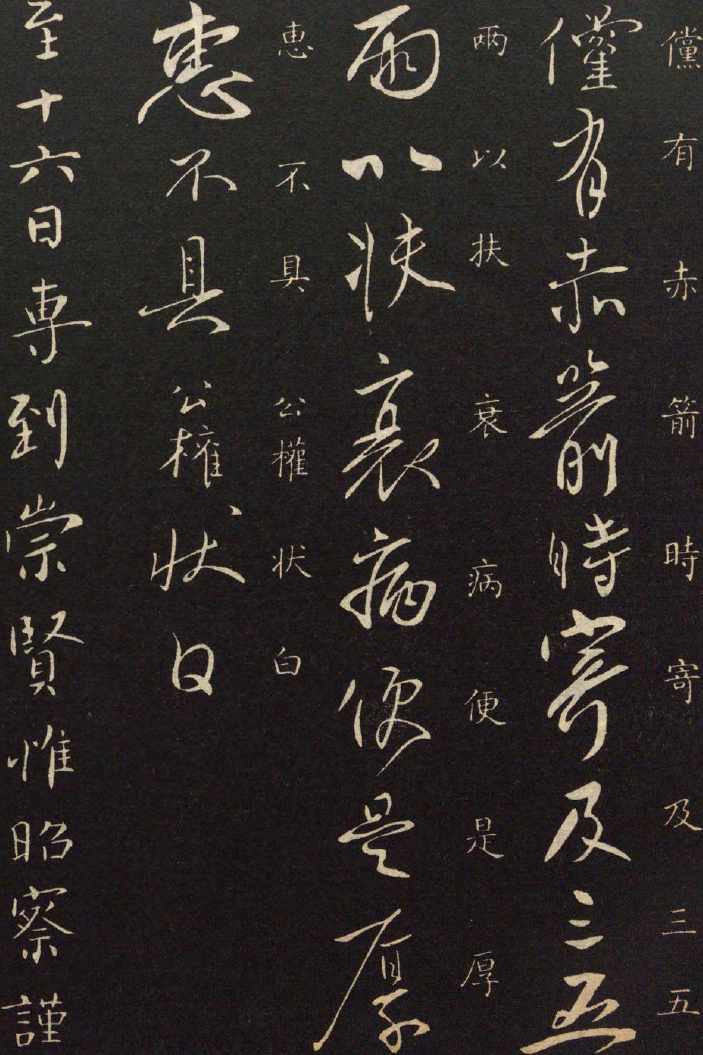 儻有赤箭時寄及三五
儻有赤箭時寄及三五
兩以扶衰病便是厚
兩以扶衰病便是厚
惠不具 公權状白
惠不具 公權状白
至十六日専到崇賢惟昭察謹